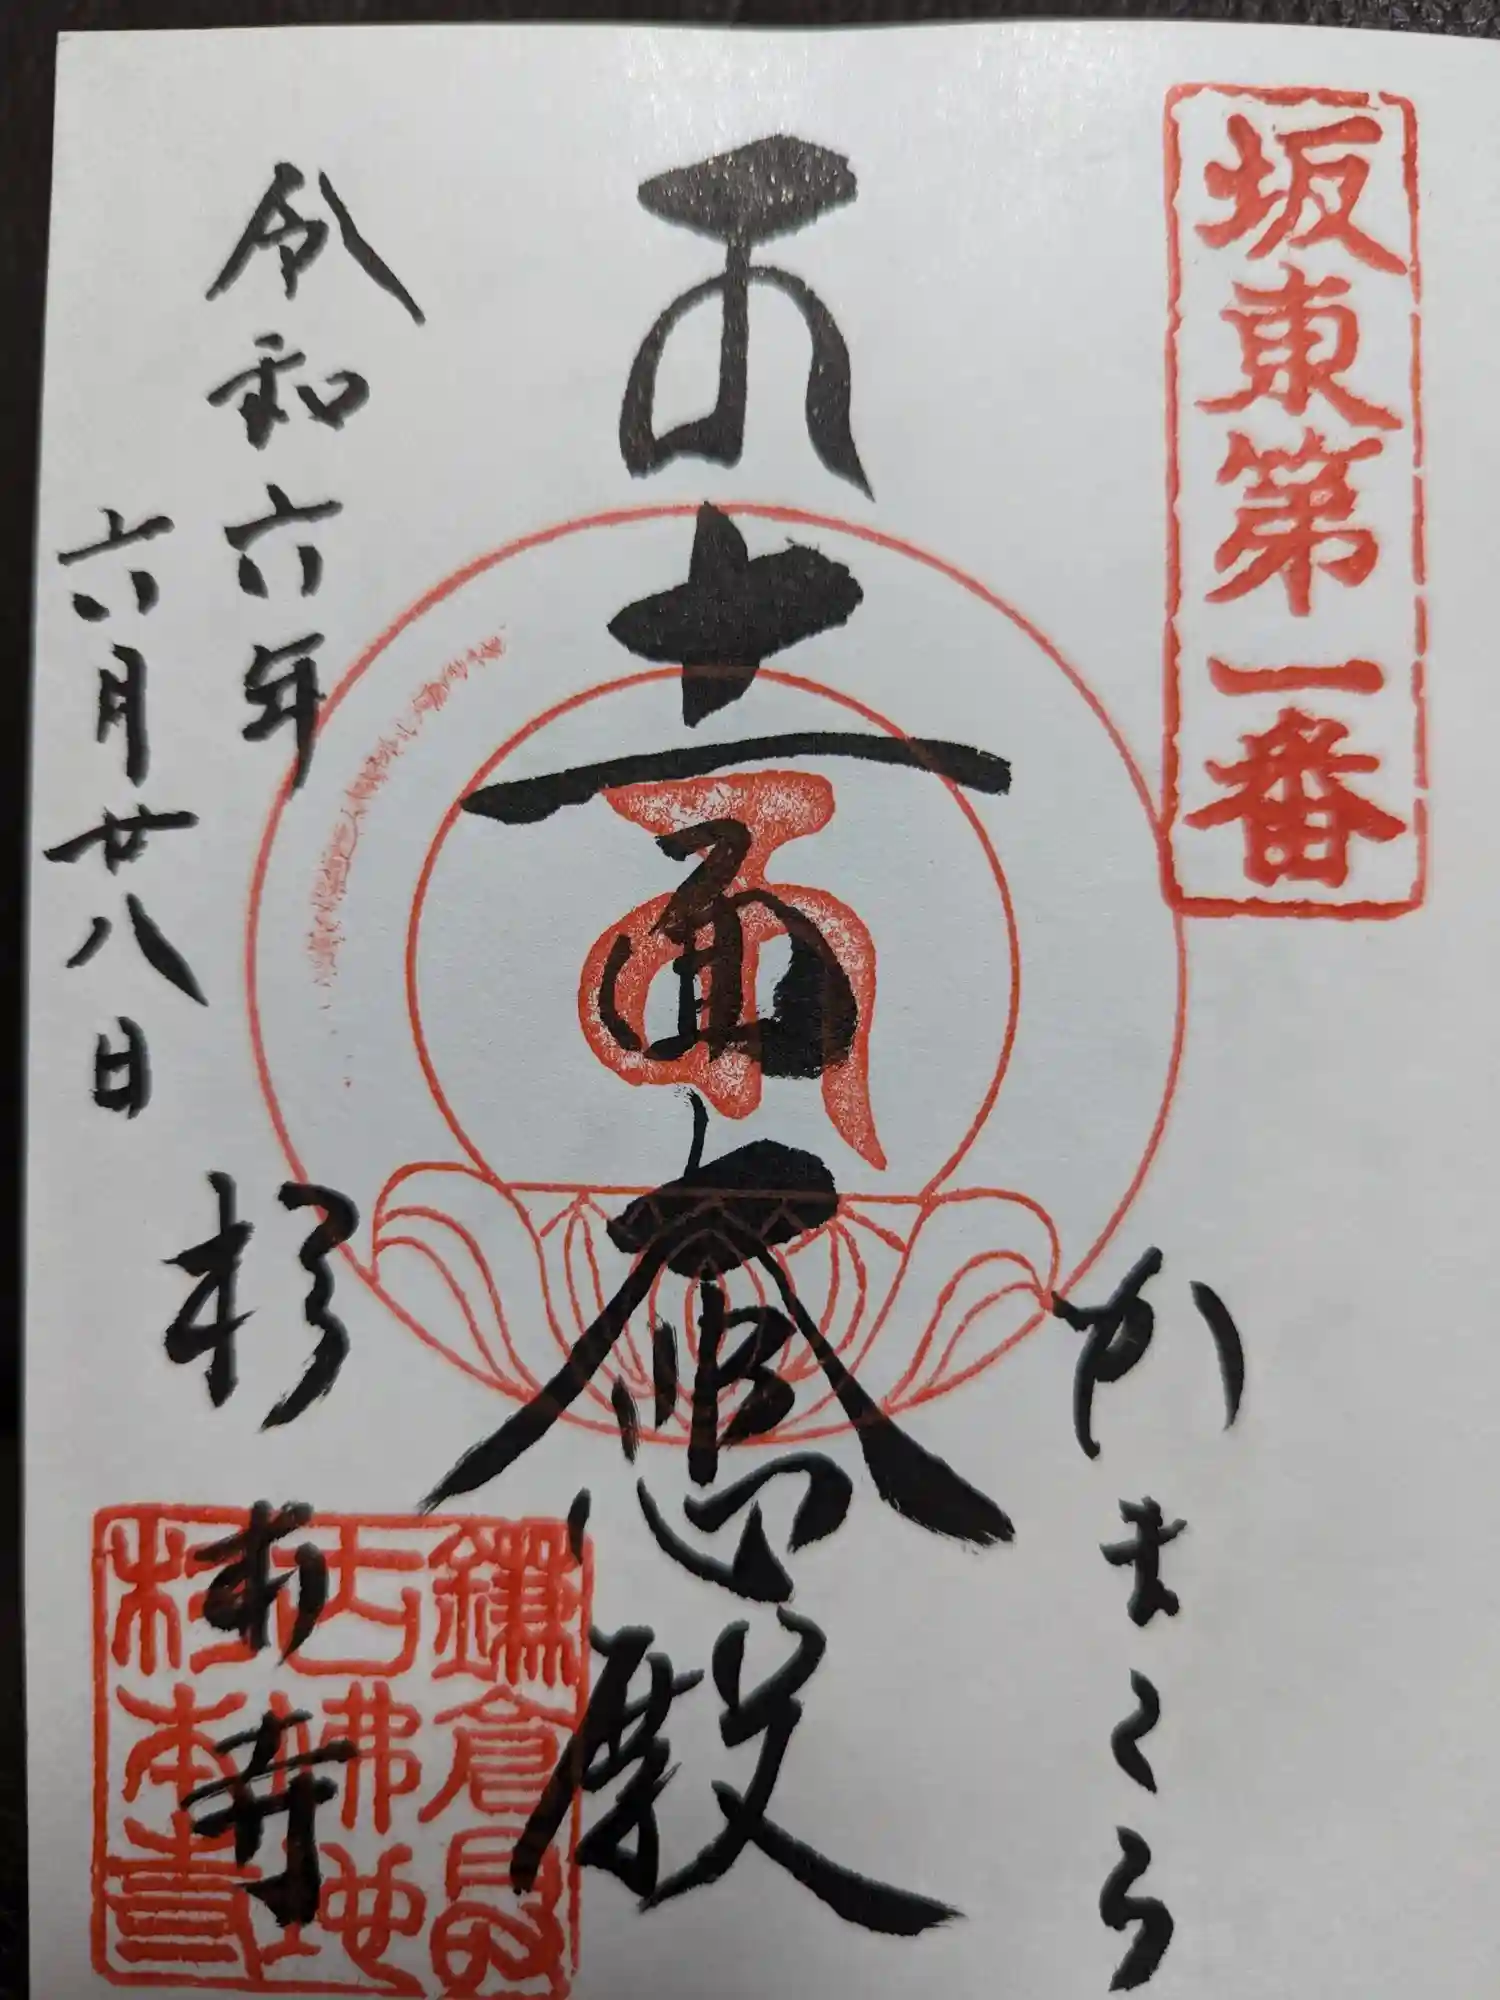 坂東第一番
かまくら
十一面大悲殿
令和六年
六月廿八日
杉本寺
鎌倉最
古佛地
杉本